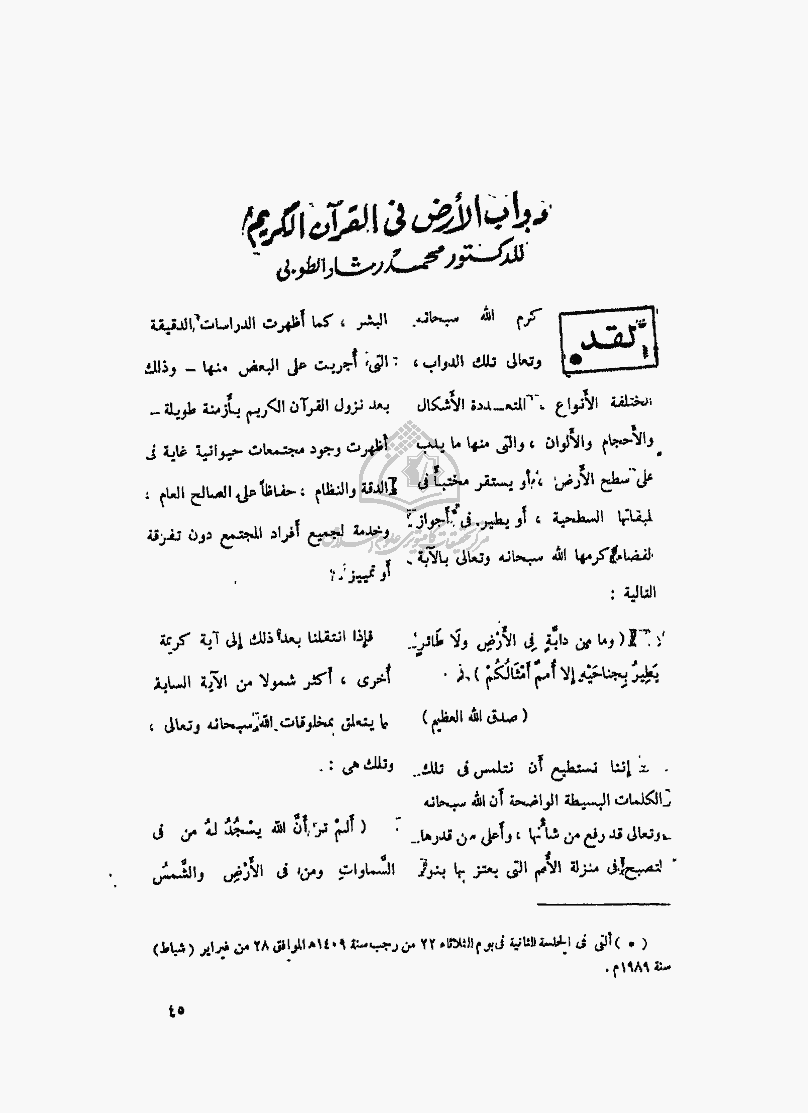 دواب الأرض فى القرآن الكريم
للدكتور محمد رشاد الطوبى
لقد
كرم الله سبحانه
وتعالى تلك الدواب ،
المختلفة الأنواع ، المتعددة الأشكال
والأحجام والألوان ، والتى منها ما يدب
على سطح الأرض ، أو يستقر مختبأً فى
طبقاتها السطحية ، أو يطير فى أجواز
الفضاء كرمها الله سبحانه وتعالى بالآية
التالية :
( وما من دابَّةٍ فِى الأَرْضِ ولَا طَائرٍ
يَطِيرُ بِجناحَيْهِ إلا أُممٌ أَمْثَالُكُمْ )
( صدق الله العظيم )
إننا نستطيع أن نتلمس فى تلك
الكلمات البسيطة الواضحة أن الله سبحانه
وتعالى قد رفع من شأنها ، وأعلى من قدرها
لتصبح فى منزلة الأمم التى يعتز بها بنو
البشر ، كما أظهرت الدراسات الدقيقة
التى أُجريت على البعض منها – وذلك
بعد نزول القرآن الكريم بأزمنة طويلة –
أظهرت وجود مجتمعات حيوانية غاية فى
الدقة والنظام ، حفاظاً على الصالح العام ،
وخدمة لجميع أفراد المجتمع دون تفرقة
أو تمييز .
فإذا انتقلنا بعد ذلك إلى آية كريمة
أُخرى ، أكثر شمولا من الآية السابقة
ما يتعلق بمخلوقات الله سبحانه وتعالى ،
وتلك هى :
( أَلمْ تر أَنَّ الله يسْجُدُ لهُ من فى
السَّماواتِ ومن فى الأَرْضِ والشَّمسُ
( * ) ألقى فى الجلسة الثانية فى يوم الثلاثاء ٢٢ من رجب سنة ١٤٠٩هـ الموافق ٢٨ من فبراير ( شباط )
سنة ١٩٨٩م .
٤٥
مرکز تحقیقات کامپیوتری علوم اسلامی